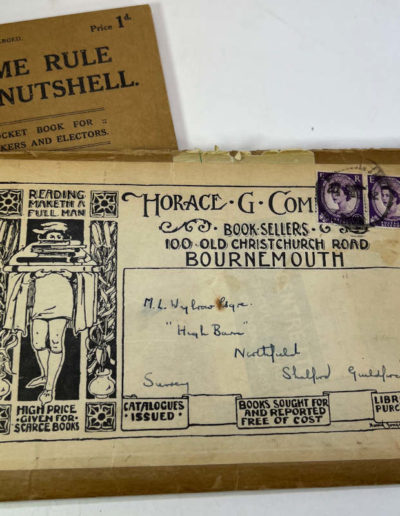 Price 1d.
ME RULE
NUTSHELL.
POCKET BOOK FOR ::
KERS AND ELECTORS.
READING
MAKETH A
FULL MAN
HORACE · G · COM
· BOOK · SELLERS ·
100 OLD CHRISTCHURCH ROAD
BOURNEMOUTH
"High Barn"
Northfield
Shalford Guildford
Surrey
HIGH PRICE
· GIVEN · FOR ·
SCARCE BOOKS
CATALOGUES
ISSUED
BOOKS SOUGHT FOR
AND REPORTED
FREE OF COST
LIBR
PURC